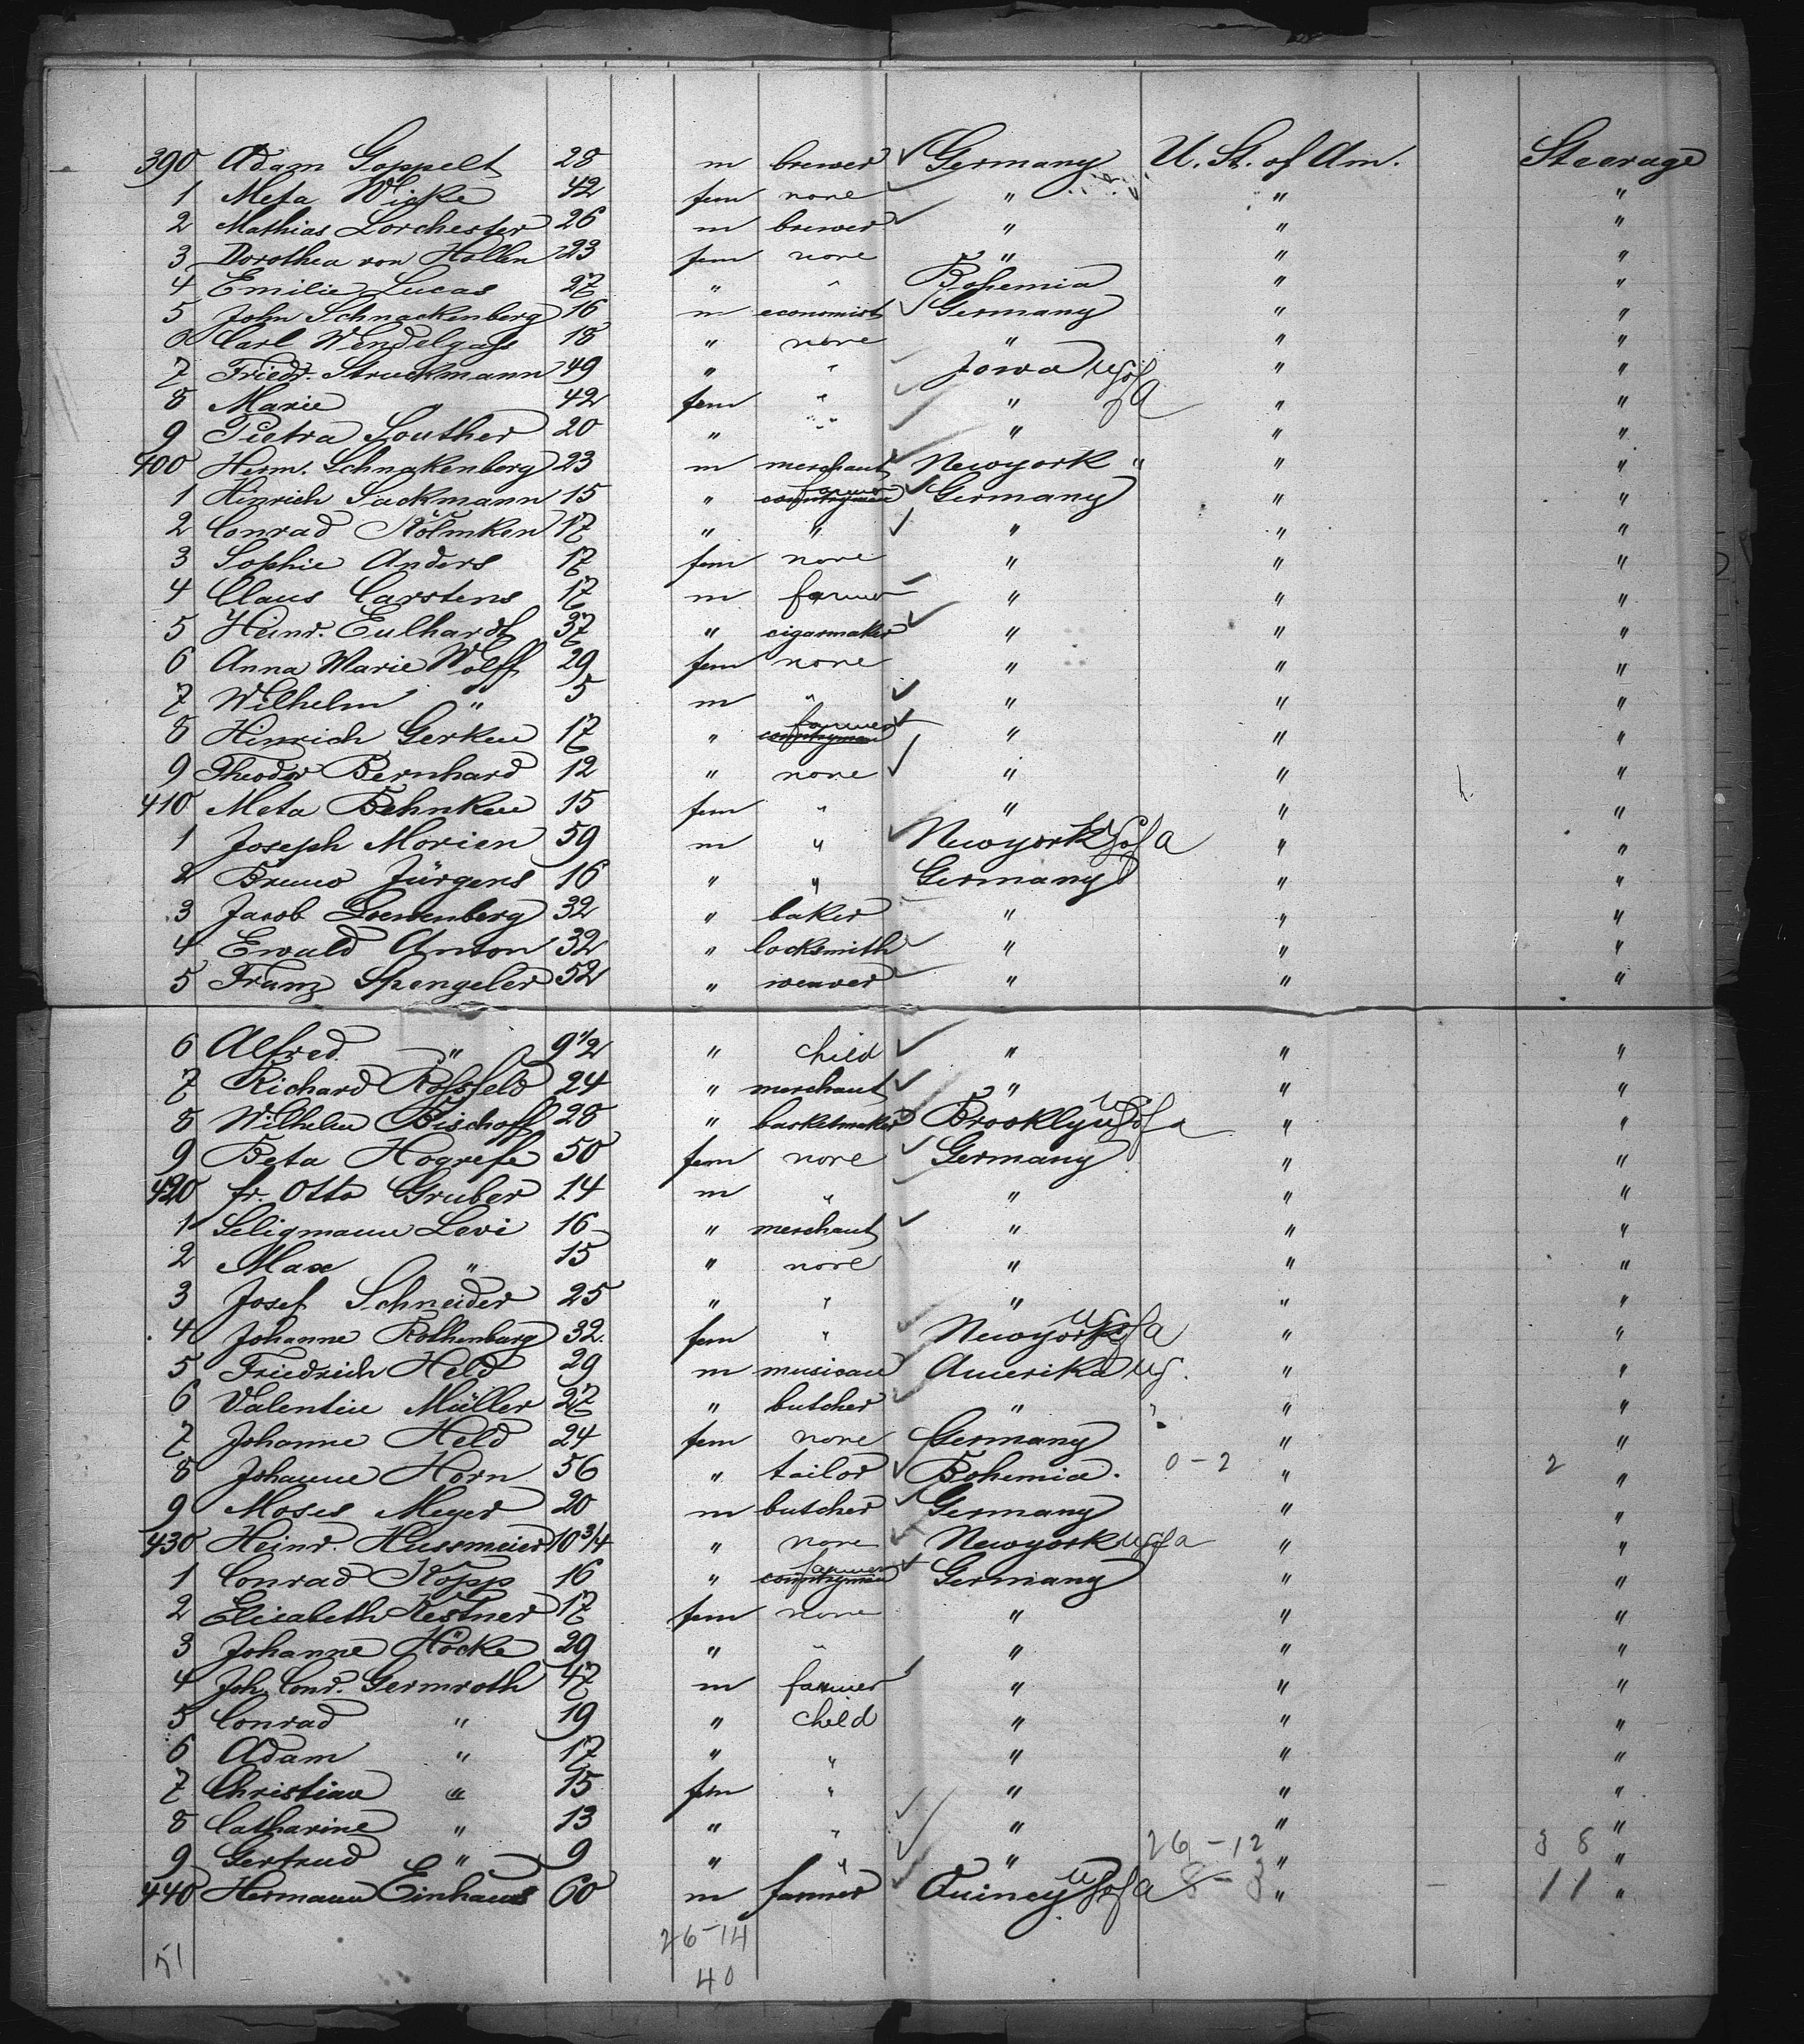 390 Adam Goppelt 28 m brewer Germany U. St. of Am. Steerage
1 Meta Wicke 42 fem none " " "
2 Mathias Lorchester 26 m brewer " " "
3 Dorothea von Hollen 23 fem none " " "
4 Emilie Lucas 27 " " Bohemia " "
5 John Schnackenberg 16 m economist Germany " "
6 Carl Wendelgass 18 " none " " "
7 Friedr. Struckmann 49 " " Jowa US of A " "
8 Marie " 42 fem " " " "
9 Pietra Souther 20 " " " " "
400 Herm. Schnakenberg 23 m merchant Newyork " " "
1 Hinrich Sackmann 15 " countryman farmer Germany " "
2 Conrad Kölmken 17 " " " " "
3 Sophie Anders 17 fem none " " "
4 Claus Carstens 17 m farmer " " "
5 Heinr. Eulhardt 37 " cigarmaker " " "
6 Anna Marie Wolff 29 fem none " " "
7 Wilhelm " 5 m " " " "
8 Hinrich Gerken 17 " countryman farmer " " "
9 Theodor Bernhard 12 " none " " "
410 Meta Behnken 15 fem " " " "
1 Joseph Morien 59 m " Newyork US of A " "
2 Bruno Jürgens 16 " " Germany " "
3 Jacob Loewenberg 32 " baker " " "
4 Ewald Anton 32 " locksmith " " "
5 Franz Spengeler 52 " weaver " " "
6 Alfred " 9 1/2 " child " " "
7 Richard Rossfeld 24 " merchant " " "
8 Wilhelm Bischoff 28 " basketmaker Brooklyn US of a " "
9 Beta Hogrefe 50 fem none Germany " "
420 fr. Otto Gruber 14 m " " " "
1 Seligmann Levi 16 " merchant " " "
2 Max " 15 " none " " "
3 Josef Schneider 25 " " " " "
4 Johanne Rothenburg 32 fem " Newyork US of a " "
5 Friedrich Held 29 m musican Amerika US. " "
6 Valentin Müller 27 " butcher " " " "
7 Johanne Held 24 fem none Germany " "
8 Johanne Horn 56 " tailor Bohemia. 0-2 " 2 "
9 Moses Meyer 20 m butcher Germany " "
430 Heinr. Hussmeier 10 3/4 " none Newyork US of a " "
1 Conrad Kopp 16 " countryman farmer Germany " "
2 Elisabeth Kestner 17 fem none " " "
3 Johanne Höcke 29 " " " " "
4 Joh. Conr. Germroth 47 m farmer " " "
5 Conrad " 19 " child " " "
6 Adam " 17 " " " " "
7 Christian " 15 fem " " " "
8 Catharine " 13 " " " " "
9 Gertrud " 9 " " " 26-12 " 3 8 "
440 Hermann Einhaus 60 m farmer Quincy US of a 8-3 " 11 "
51 26-14
40